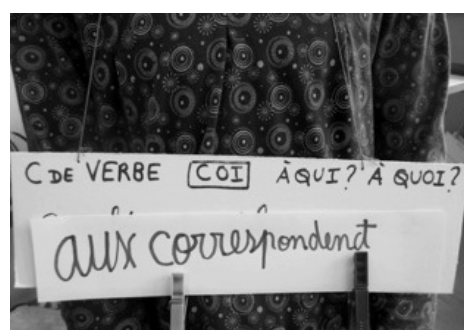 C DE VERBE COI À QUI? À QUOI?
aux correspondent